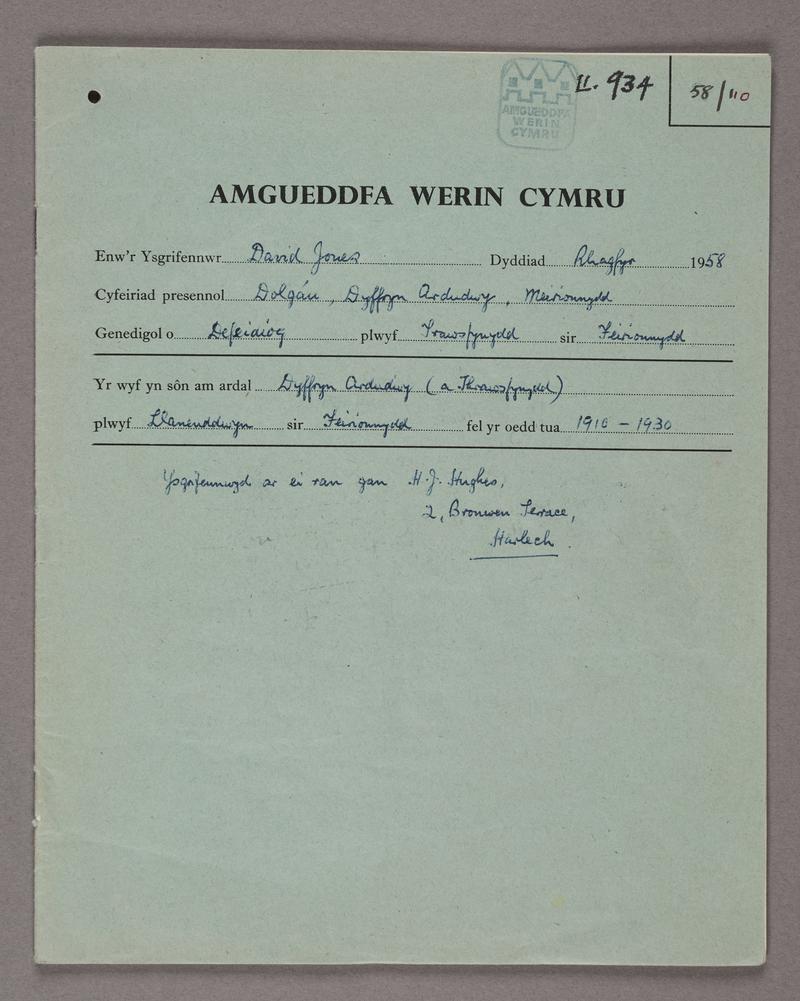 ll. 934
58/110
AMGUEDDFA
WERIN
CYMRU
AMGUEDDFA WERIN CYMRU
Enw'r Ysgrifennwr David Jones Dyddiad Rhagfyr 1958
Cyfeiriad presennol Dolgáu, Dyffryn Ardudwy, Meirionnydd
Genedigol o Defeidiog plwyf Trawsfynydd sir Feirionnydd
Yr wyf yn sôn am ardal Dyffryn Ardudwy (a Thrawsfynydd)
plwyf Llanenddwyn sir Feirionnydd fel yr oedd tua 1910 - 1930
Ysgrifennwyd ar ei ran gan H.J. Hughes,
2, Bronwen Terrace,
Harlech.